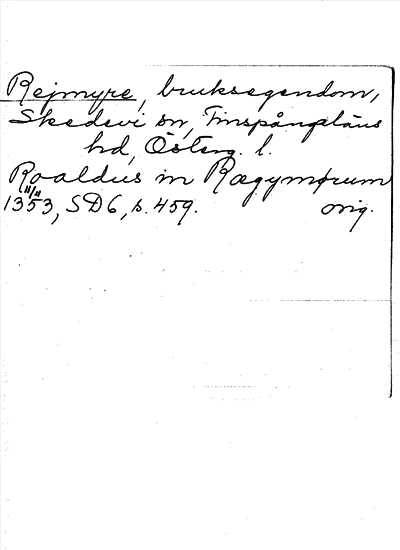 Rejmyre, bruksegendom,
Skedevi sn, Finspångaläns
hd, Österg. l.
Roaldus in Rægymørum
11/11 1353, SD6, s. 459. orig.